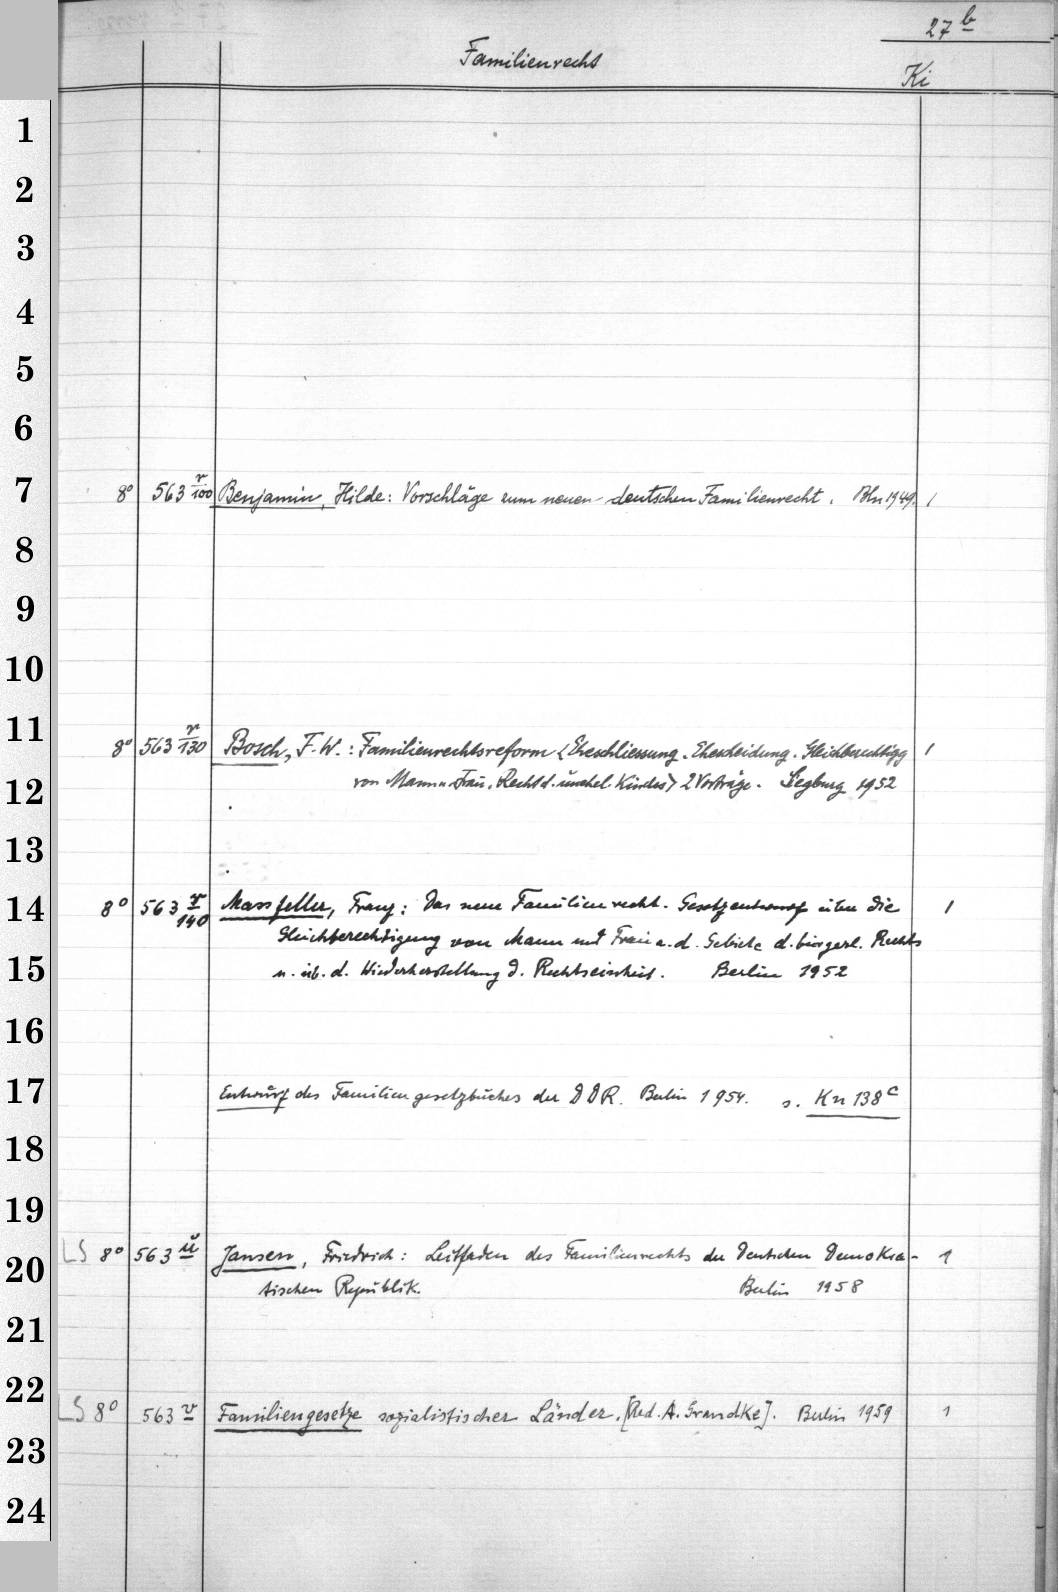 27 b
Familienrecht
Ki
1
2
3
4
5
6
7
8° 563 r/100 Benjamin, Hilde: Vorschläge zum neuen deutschen Familienrecht. Bln 1949. 1
8
9
10
11
8° 563 r/130 Bosch, F. W.: Familienrechtsreform <Eheschliessung. Ehescheidung. Gleichberechtigg
12
von Mann u. Frau. Recht d. unehel. Kindes> 2 Vorträge. Siegburg 1952
13
14
8° 563 r/140 Massfeller, Franz: Das neue Familienrecht. Gesetzentwurf über die 1
Gleichberechtigung von Mann und Frau a. d. Gebiete d. bürgerl. Rechts
15
u. üb. d. Wiederherstellung d. Rechtseinheit. Berlin 1952
16
17
Entwurf des Familiengesetzbuches der DDR. Berlin 1954. s. Kn 138 c
18
19
20
LS 8° 563 u Jansen, Friedrich: Leitfaden des Familienrechts der Deutschen Demokra- 1
tischen Republik. Berlin 1958
21
22
LS 8° 563 v Familiengesetze sozialistischer Länder. [Red. A. Grandke]. Berlin 1959 1
23
24